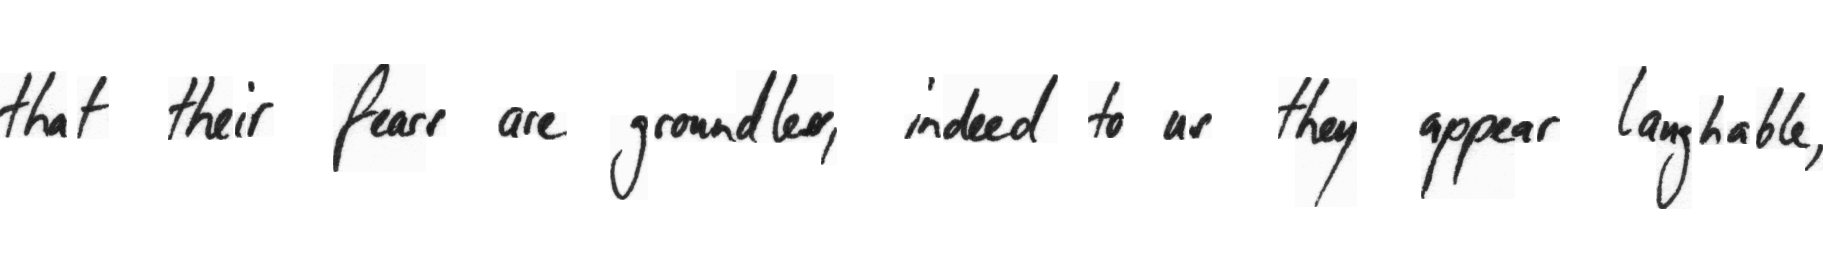 that their fears are groundless, indeed to us they appear laughable,